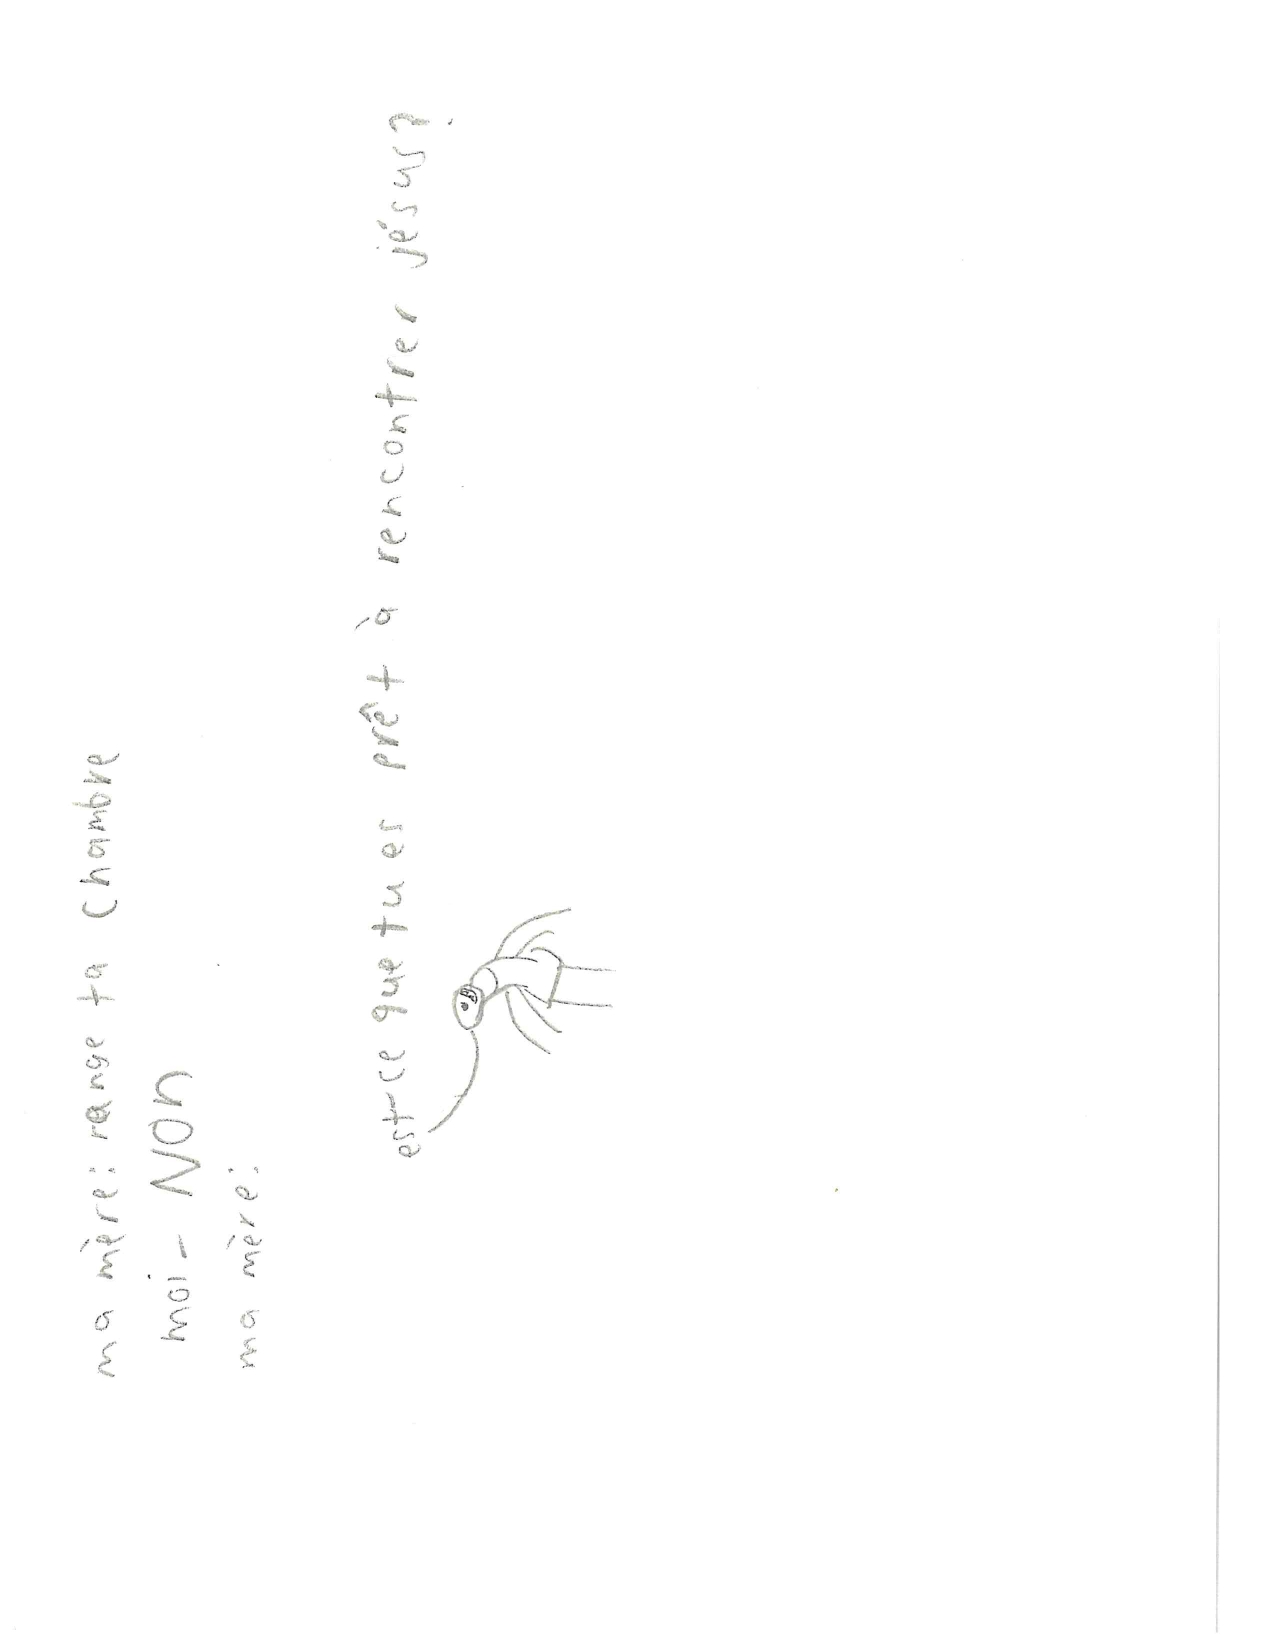 ma mère: range ta chambre
moi - Non
ma mère:
est-ce que tu es prêt à rencontrer jésus?